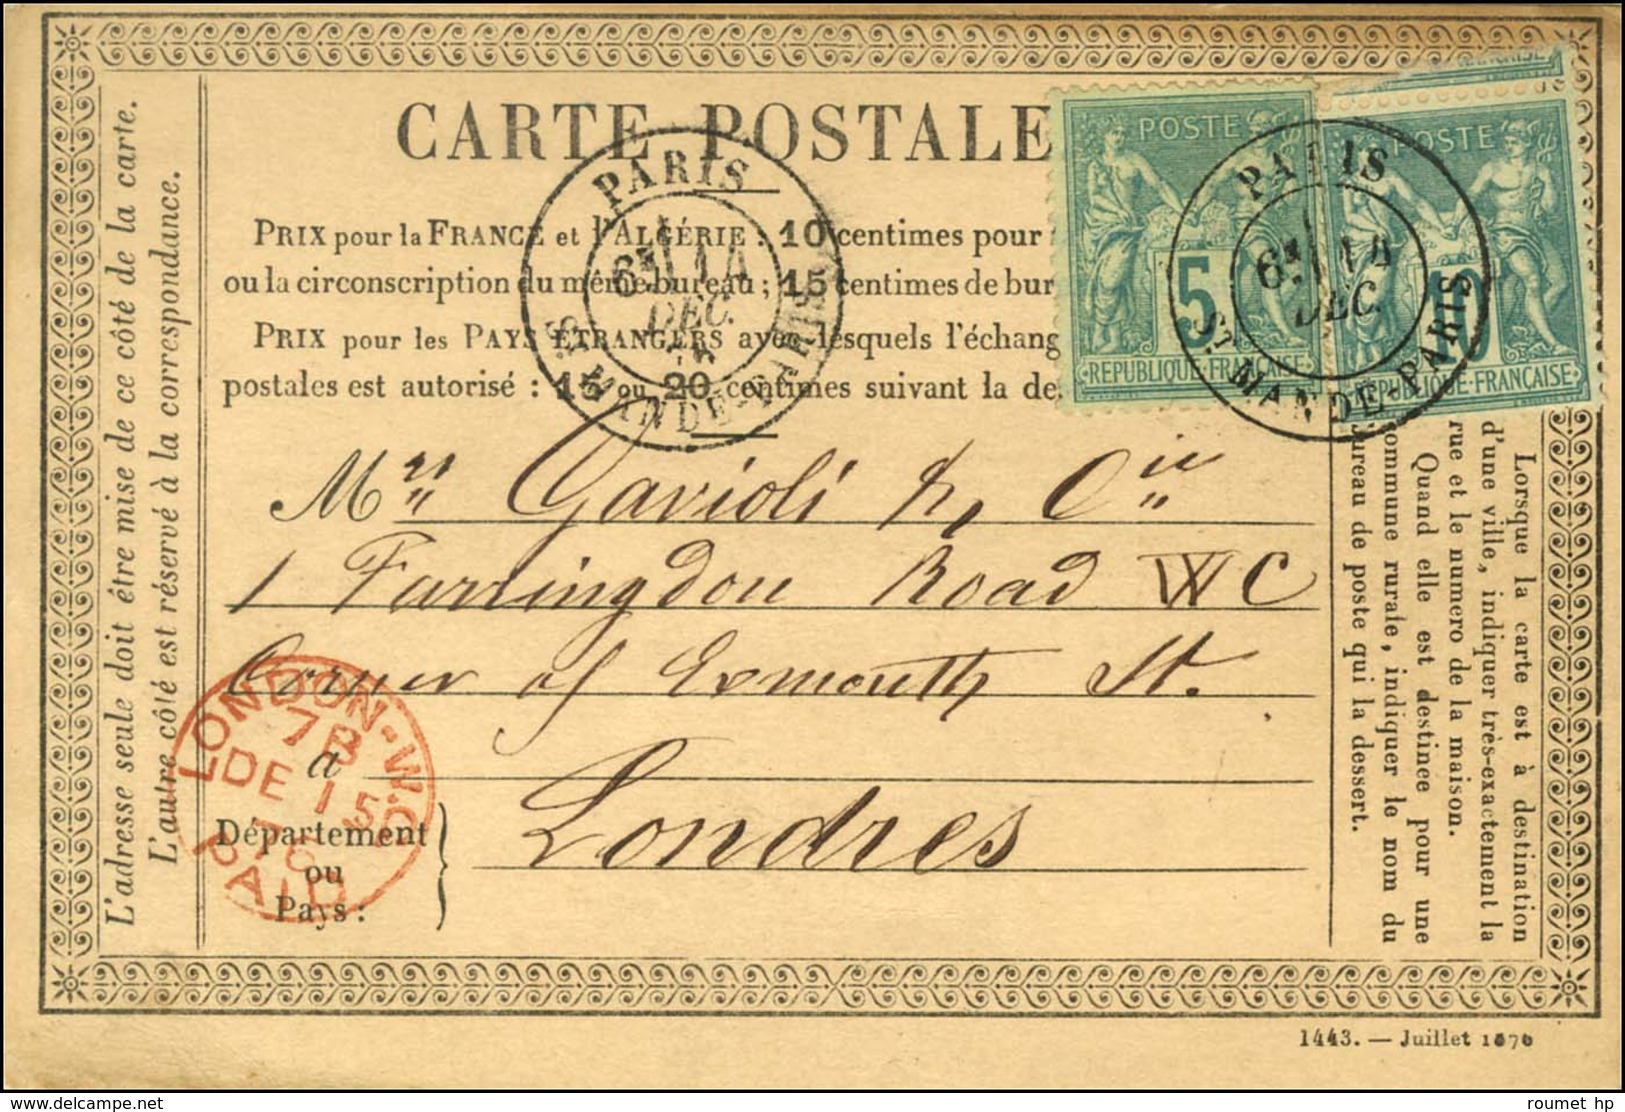 CARTE POSTALE
PRIX pour la FRANCE et l'ALGÉRIE : 10 centimes pour
ou la circonscription du même bureau ; 15 centimes de bur
PRIX pour les PAYS ÉTRANGERS avec lesquels l'échang
postales est autorisé : 15 ou 20 centimes suivant la de
PARIS
6E 14
DEC.
76
ST MANDE-PARIS
POSTE
5
REPUBLIQUE FRANÇAISE
POSTE
10
REPUBLIQUE FRANÇAISE
PARIS
6E 14
DEC.
ST MANDE-PARIS
Mrs Gavioli & Cie
1 Farringdon Road WC
Corner of Exmouth St.
à
Londres
Département
ou
Pays :
LONDON-W.C
7 B
DE 15
76
PAID
L'adresse seule doit être mise de ce côté de la carte.
L'autre côté est réservé à la correspondance.
Lorsque la carte est à destination
d'une ville, indiquer très-exactement la
rue et le numero de la maison.
Quand elle est destinee pour une
commune rurale, indiquer le nom du
bureau de poste qui la dessert.
1443. — Juillet 1876
delcampe.net
roumet hp